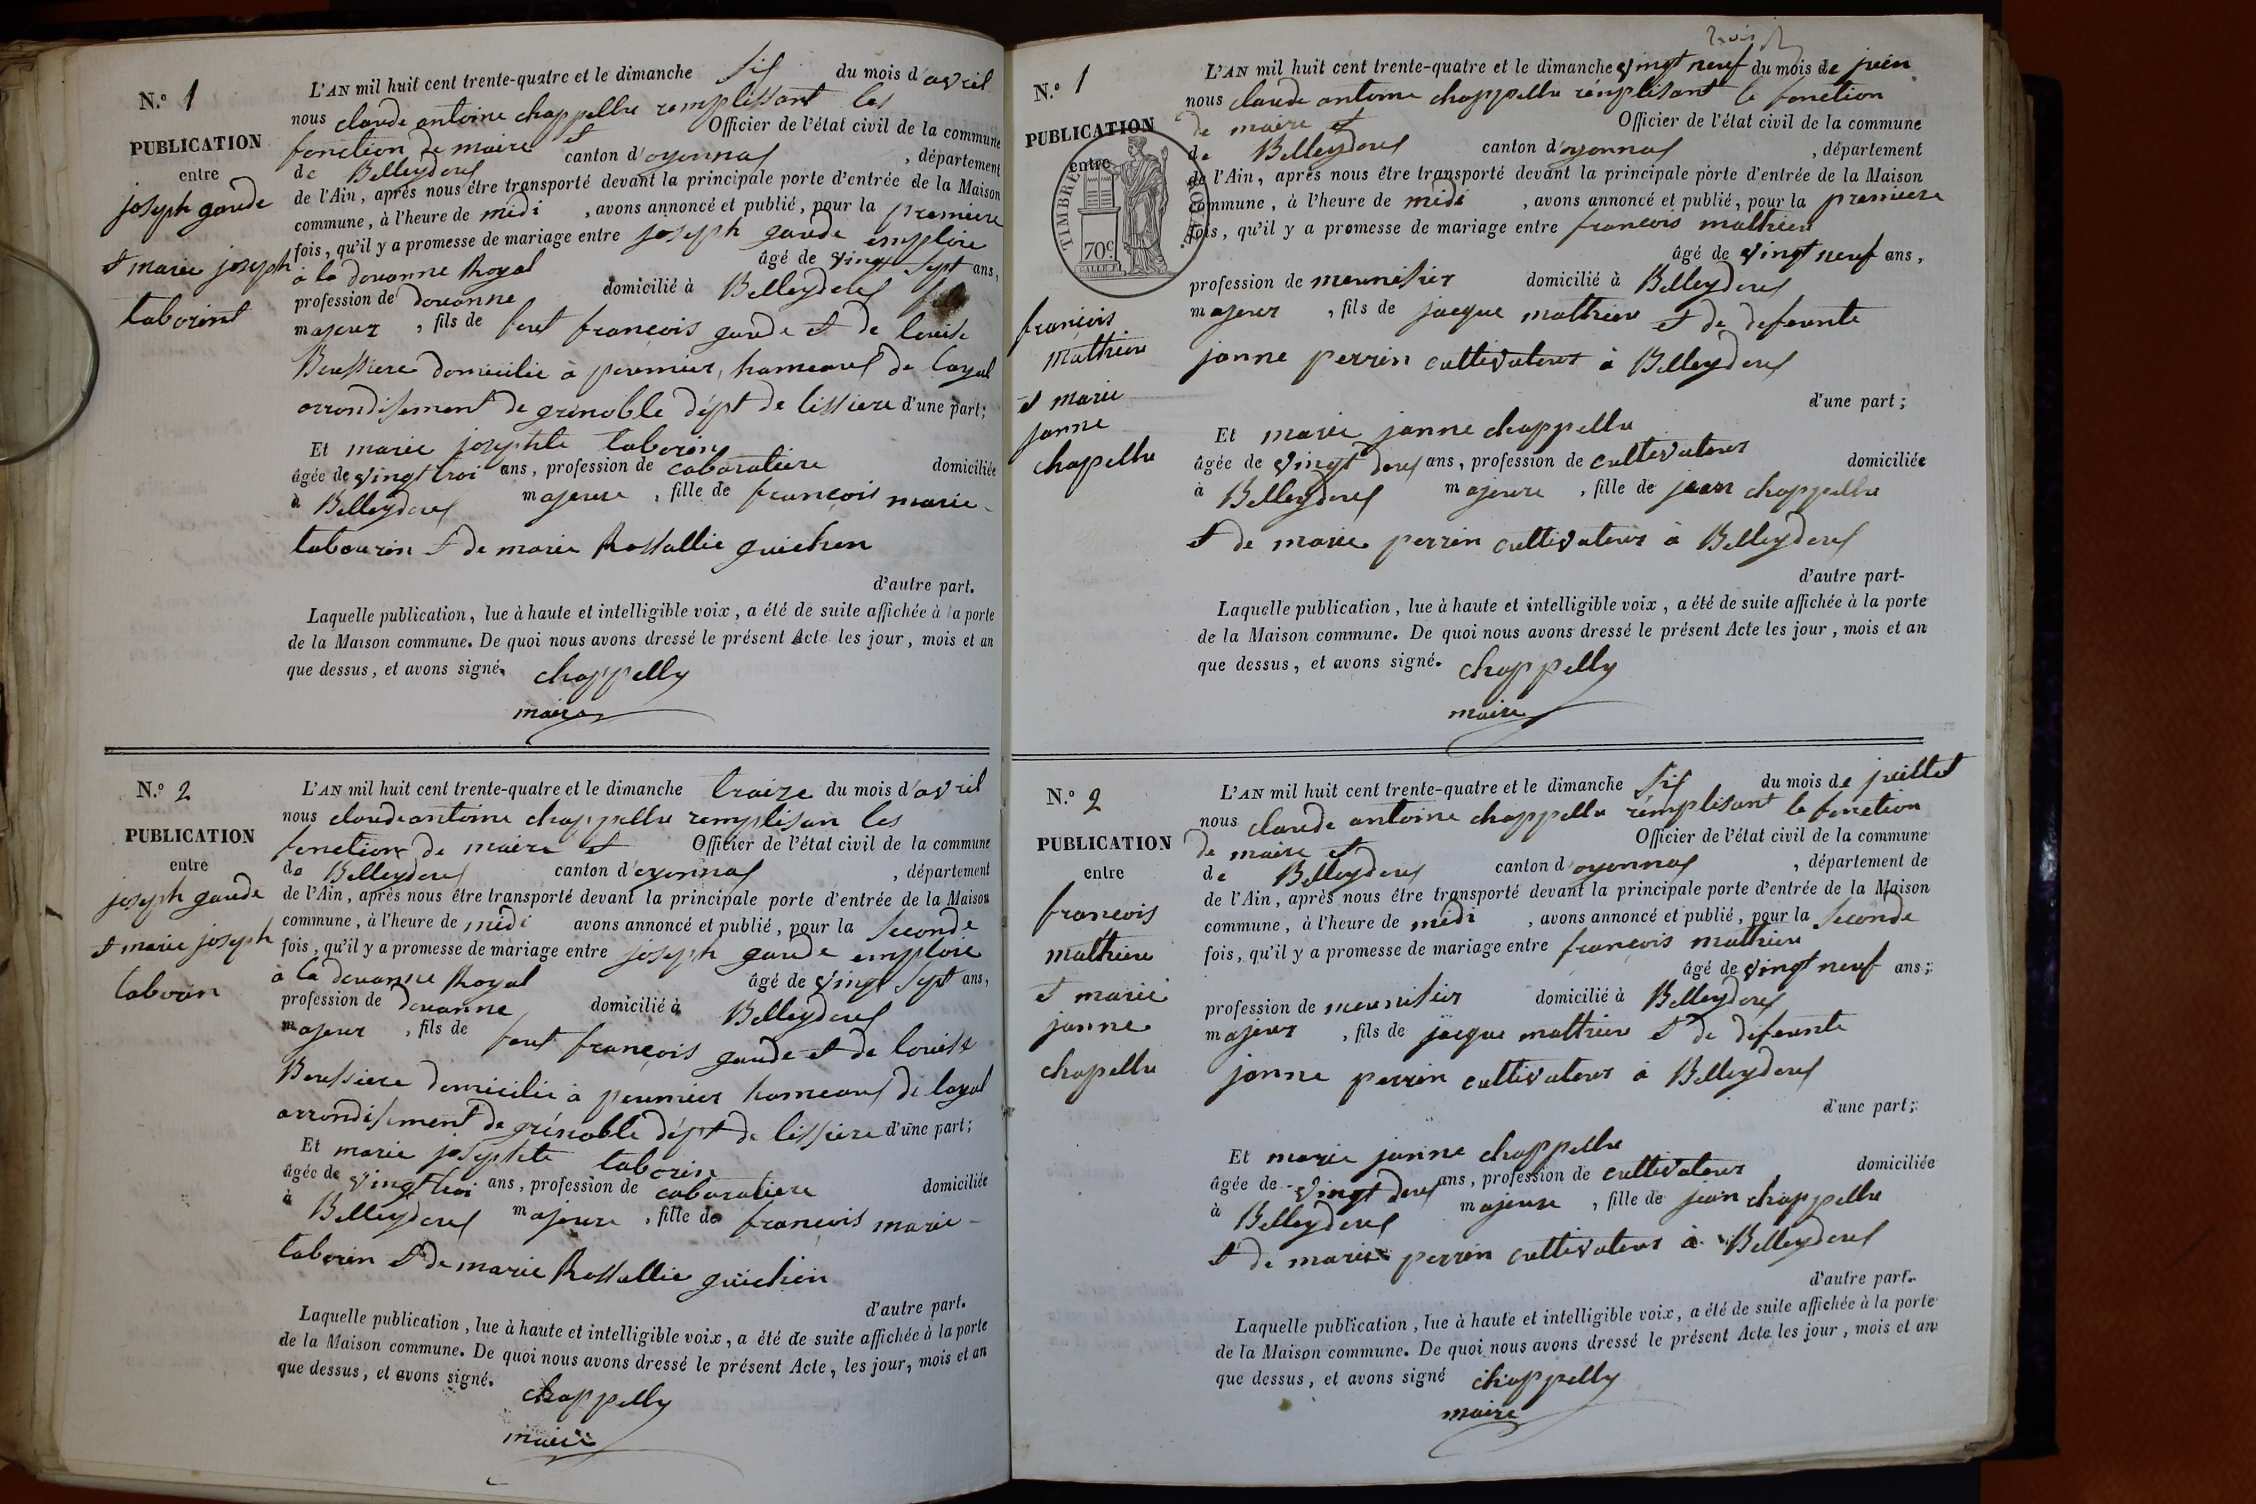 N.° 1
PUBLICATION
entre
joseph gaude
et marie joseph
taborint
L'AN mil huit cent trente-quatre et le dimanche sis du mois d'avril
nous claude antoine chappellu remplissant les
fonction de maire et Officier de l'état civil de la commune
de Belleydoux canton d'oyonnax, département
de l'Ain, après nous être transporté devant la principale porte d'entrée de la Maison
commune, à l'heure de midi, avons annoncé et publié, pour la premiere
fois, qu'il y a promesse de mariage entre joseph gaude emploie
à la douanne Royal âgé de vingt sept ans,
profession de douanne domicilié à Belleydoux
majeur, fils de feut francois gaude et de louise
Boussiere domicilie à peumier, hameaux de layal
arrondisement de grenoble dépt de lissiere d'une part;
Et marie josephte taborin
âgée de vingt troi ans, profession de cabaratiere domiciliée
à Belleydoux majeure, fille de francois marie
tabourin et de marie Rossallie guichon
d'autre part.
Laquelle publication, lue à haute et intelligible voix, a été de suite affichée à la porte
de la Maison commune. De quoi nous avons dressé le présent Acte les jour, mois et an
que dessus, et avons signé. chappelly
maire
N.° 2
PUBLICATION
entre
joseph gaude
et marie joseph
taborin
L'AN mil huit cent trente-quatre et le dimanche traize du mois d'avril
nous claude antoine chappellu remplisan les
fonction de maire et Officier de l'état civil de la commune
de Belleydoux canton d'oyonnax, département
de l'Ain, après nous être transporté devant la principale porte d'entrée de la Maison
commune, à l'heure de midi avons annoncé et publié, pour la seconde
fois, qu'il y a promesse de mariage entre joseph gaude emploie
à la douanne Royal âgé de vingt sept ans,
profession de douanne domicilié à Belleydoux
majeur, fils de feut françois gaude et de louise
Boussiere domicilie à peumier hameaux de layal
arrondisement de grénoble dépt de lissiere d'une part;
Et marie josephte taborin
âgée de vingt troi ans, profession de cabaratiere domiciliée
à Belleydoux majeure, fille de francois marie
taborin et de marie Rossallie guichon
d'autre part.
Laquelle publication, lue à haute et intelligible voix, a été de suite affichée à la porte
de la Maison commune. De quoi nous avons dressé le présent Acte, les jour, mois et an
que dessus, et avons signé.
chappelly
maire
N.° 1
PUBLICATION
entre
TIMBRE ROYAL
70c
francois
mathieu
et marie
janne
chapellu
L'AN mil huit cent trente-quatre et le dimanche vingt neuf du mois de juin
nous claude antoine chappellu rémplisant le fonction
de maire et Officier de l'état civil de la commune
de Belleydoux canton d'oyonnax, département
de l'Ain, après nous être transporté devant la principale porte d'entrée de la Maison
commune, à l'heure de midi, avons annoncé et publié, pour la premiere
fois, qu'il y a promesse de mariage entre francois mathieu
âgé de vingt neuf ans,
profession de meunisier domicilié à Belleydoux
majeur, fils de jacque mathieu et de defeunte
janne perrin cultivateur à Belleydoux
d'une part;
Et marie janne chappellu
âgée de vingt deux ans, profession de cultivateur domiciliée
à Belleydoux majeure, fille de jean chappellu
et de marie perrin cultivateur à Belleydoux
d'autre part-
Laquelle publication, lue à haute et intelligible voix, a été de suite affichée à la porte
de la Maison commune. De quoi nous avons dressé le présent Acte les jour, mois et an
que dessus, et avons signé. chappelly
maire
N.° 2
PUBLICATION
entre
françois
mathieu
et marie
janne
chapellu
L'AN mil huit cent trente-quatre et le dimanche sis du mois de juillet
nous claude antoine chappellu rémplisant le fonction
de maire et Officier de l'état civil de la commune
de Belleydoux canton d'oyonnax, département de
de l'Ain, après nous être transporté devant la principale porte d'entrée de la Maison
commune, à l'heure de midi, avons annoncé et publié, pour la seconde
fois, qu'il y a promesse de mariage entre françois mathieu
âgé de vingt neuf ans;
profession de meunisier domicilié à Belleydoux
majeur, fils de jacque mathieu et de difeunte
janne perrin cultivateur à Belleydoux
d'une part;
Et marie janne chappellu
âgée de vingt deux ans, profession de cultivateur domiciliée
à Belleydoux majeure, fille de jean chappellu
et de marie perrin cultivateur à Belleydoux
d'autre part.
Laquelle publication, lue à haute et intelligible voix, a été de suite affichée à la porte
de la Maison commune. De quoi nous avons dressé le présent Acte les jour, mois et an
que dessus, et avons signé chappelly
maire